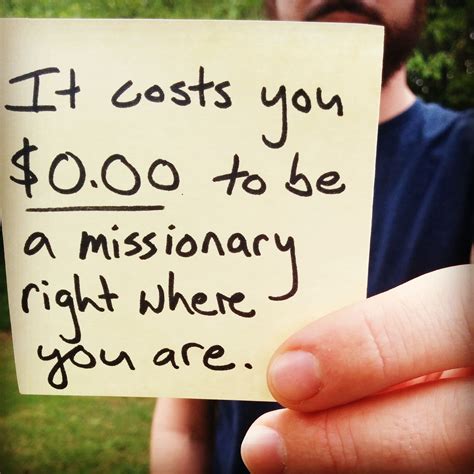 It costs you
$0.00 to be
a missionary
right where
you are.